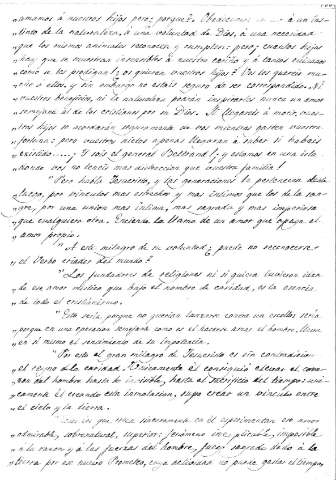 „amamos á nuestros hijos pero; porque? Obedecemos á un ins-
„tinto de la naturaleza, á una voluntad de Dios, á una necesidad
„que los mismos animales reconocen y cumplen: pero; cuantos hijos
„hay que se muestran insensibles á nuestro cariño y á tantos cuidados
„como se les prodigan! ¿os quieren vuestros hijos? Vos los quereis mu-
„cho á ellos, y sin embargo no estais seguro de ser correspondido. Ni
„vuestros beneficios, ni la naturaleza podrán inspirarles nunca un amor
„semejante al de los cristianos por su Dios. Si llegareis á morir, vues-
„tros hijos se acordarán seguramente de vos mientras gasten vuestra
„fortuna; pero vuestros nietos apenas llegarán á saber si habeis
„existido.....¡Y sois el general Bertrand! y estamos en una isla
„donde vos no teneis mas distraccion que vuestra familia!
"Pero habla Jesucristo, y las generaciones le pertenecen
por vinculos mas estrechos y mas intimos que los de la san-
„gre, por una union mas intima, mas sagrada y mas imperiosa
„que cualquiera otra. Enciende la llama de un amor que apaga el
„amor propio.
"A este milagro de su voluntad ¿puede no reconocerse
„el Verbo criador del mundo?
"Los fundadores de religiones ni si quiera tuvieron idea
„de un amor mistico que bajo el nombre de caridad, es la esencia
„de todo el cristianismo.
"Esto seria porque no querian lanzarse contra un escollo seria
„porque en una operacion semejante como es el hacerse amar el hombre, lleva
„en si mismo el sentimiento de su impotencia.
"Por esto el gran milagro de Jesucristo es sin contradiccion
„el reyno de la caridad. Unicamente él consiguió elevar el cora-
„zon del hombre hasta lo invisible, hasta el sacrificio del tiempo: uni-
„camente él creando esta inmolacion, supo crear un vinculo entre
„el cielo y la tierra.
creen sinceramente en él esperimentan ese amor
„admirable, sobrenatural, superior: fenómeno inesplicable, imposible
„á la razon y á las fuerzas del hombre, fuego sagrado dado á la
„tierra por un nuevo Prometeo, cuya actividad no puede gastar el tiempo,